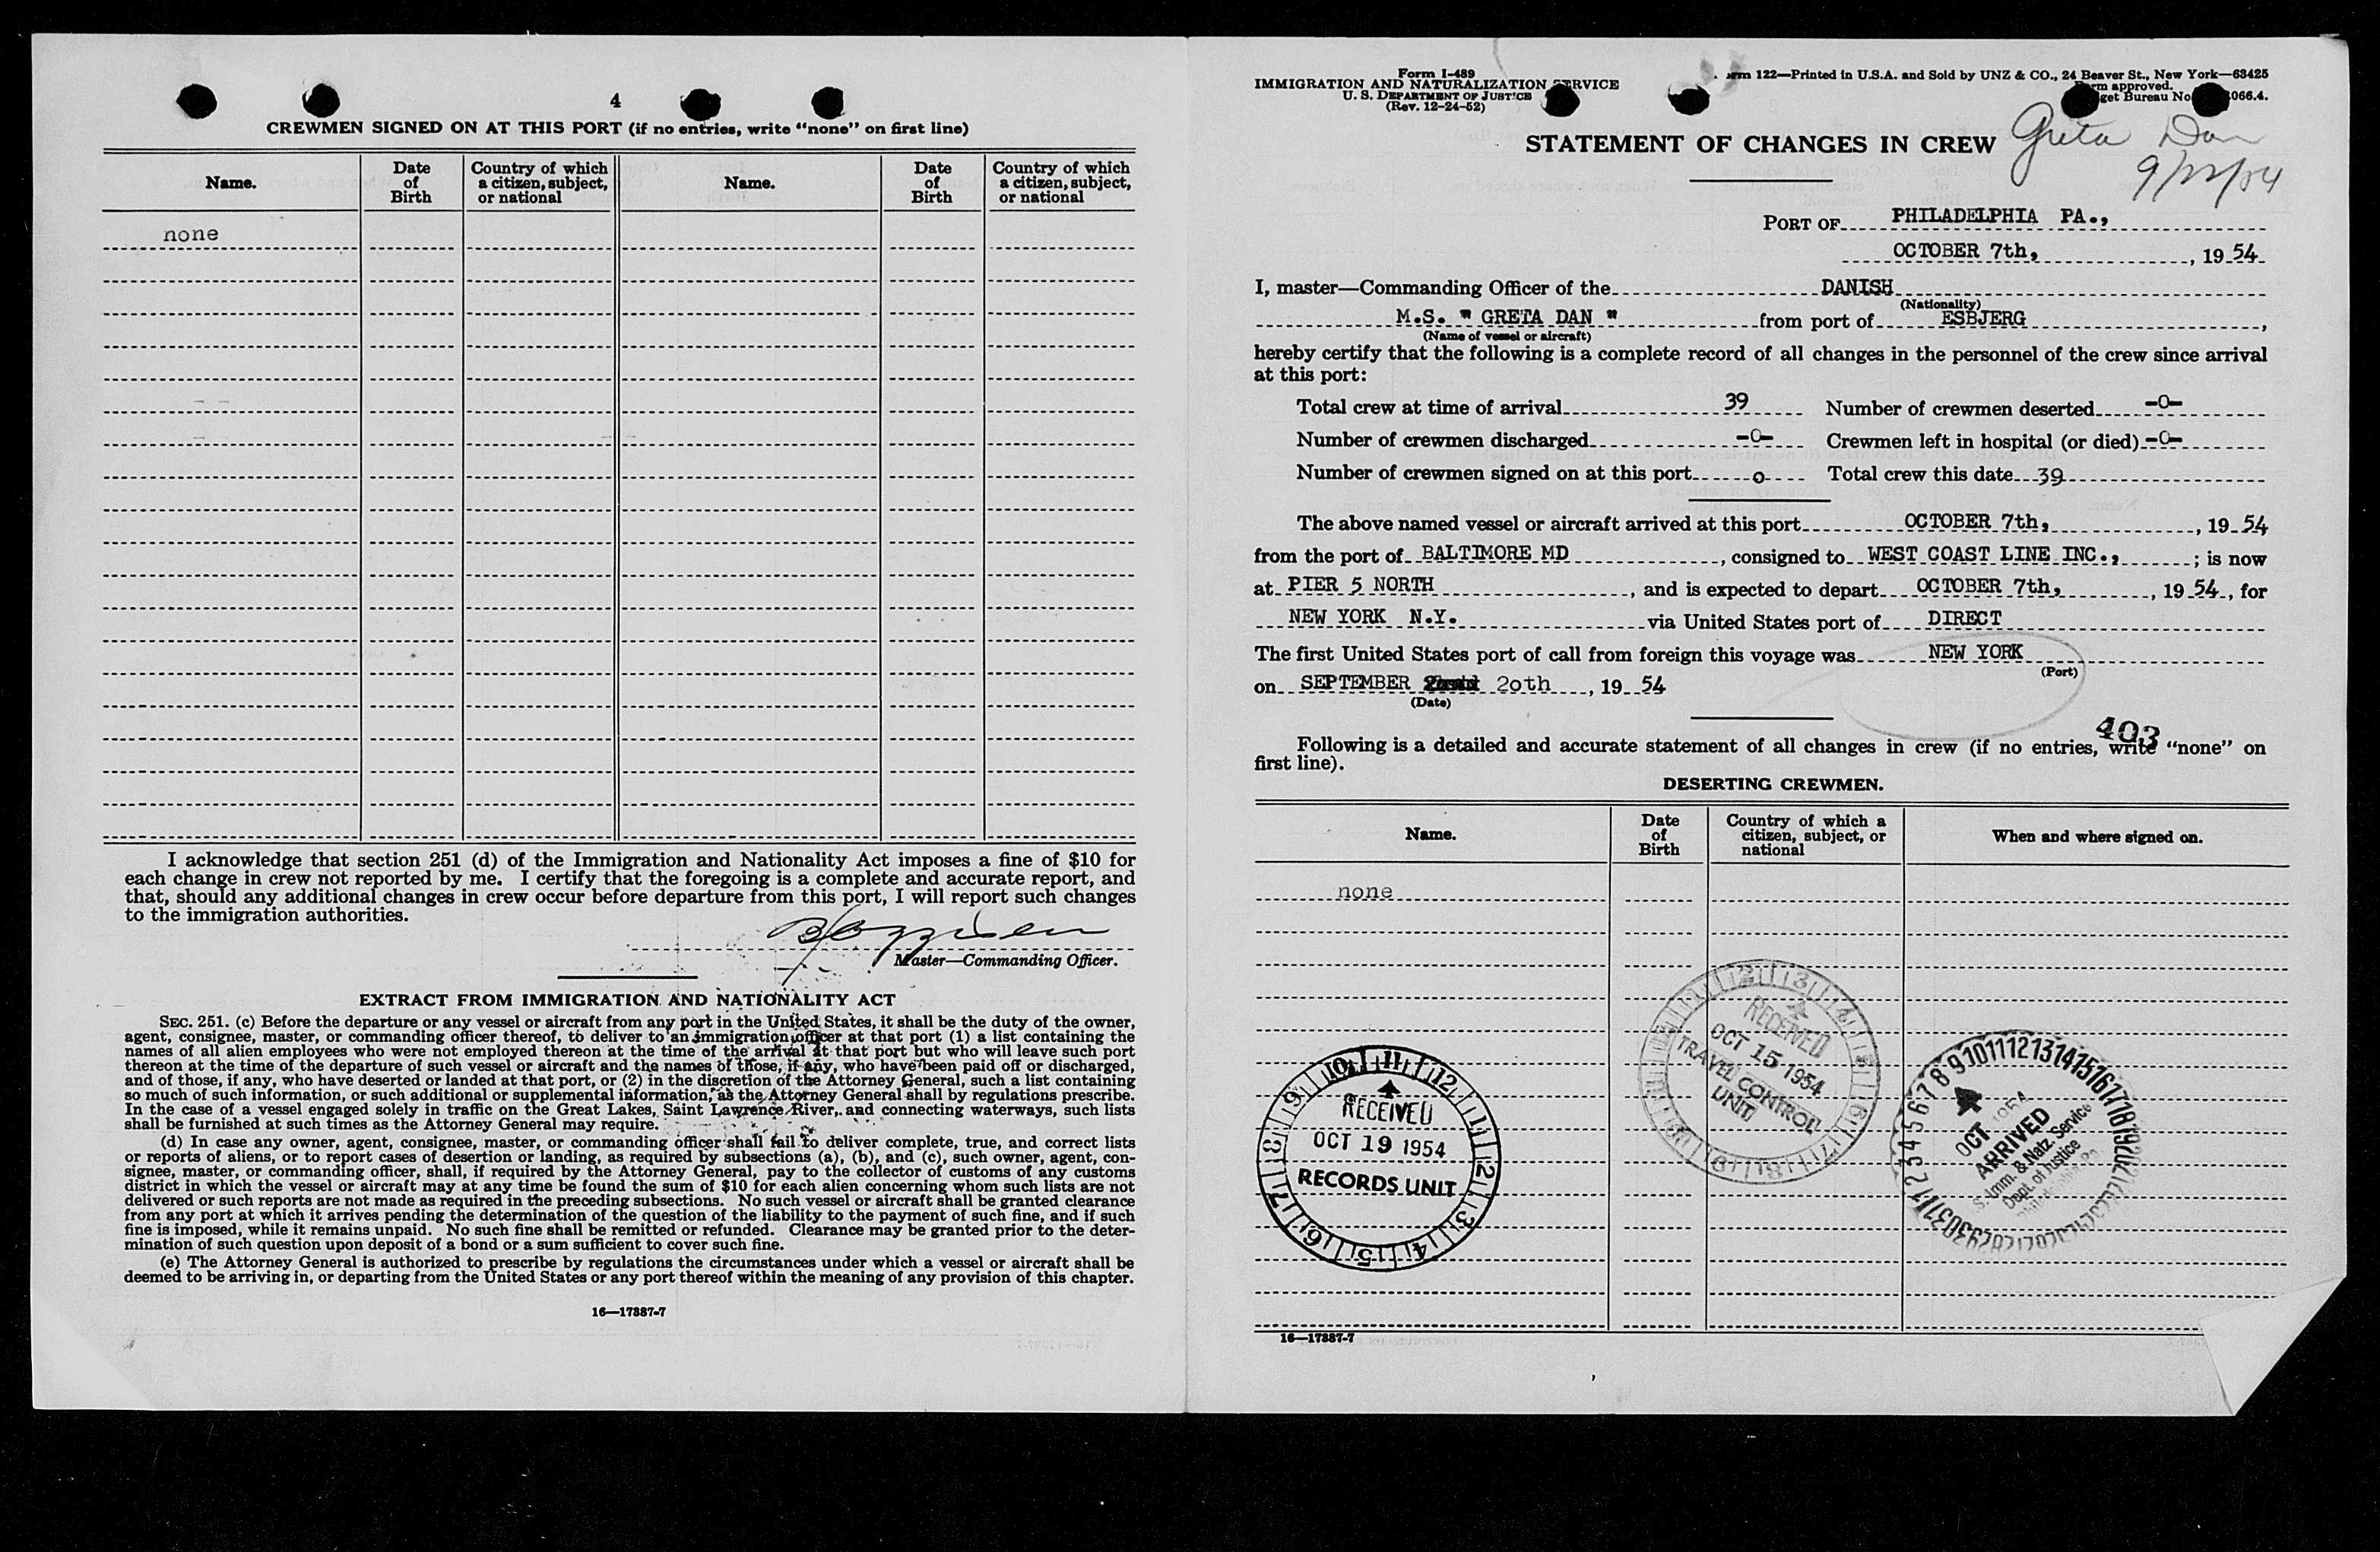 4
CREWMEN SIGNED ON AT THIS PORT (if no entries, write “none” on first line)
Name. Date of Birth Country of which a citizen, subject, or national Name. Date of Birth Country of which a citizen, subject, or national
none
I acknowledge that section 251 (d) of the Immigration and Nationality Act imposes a fine of $10 for
each change in crew not reported by me. I certify that the foregoing is a complete and accurate report, and
that, should any additional changes in crew occur before departure from this port, I will report such changes
to the immigration authorities.
Master—Commanding Officer.
EXTRACT FROM IMMIGRATION AND NATIONALITY ACT
SEC. 251. (c) Before the departure or any vessel or aircraft from any port in the United States, it shall be the duty of the owner,
agent, consignee, master, or commanding officer thereof, to deliver to an immigration officer at that port (1) a list containing the
names of all alien employees who were not employed thereon at the time of the arrival at that port but who will leave such port
thereon at the time of the departure of such vessel or aircraft and the names of those, if any, who have been paid off or discharged,
and of those, if any, who have deserted or landed at that port, or (2) in the discretion of the Attorney General, such a list containing
so much of such information, or such additional or supplemental information, as the Attorney General shall by regulations prescribe.
In the case of a vessel engaged solely in traffic on the Great Lakes, Saint Lawrence River, and connecting waterways, such lists
shall be furnished at such times as the Attorney General may require.
(d) In case any owner, agent, consignee, master, or commanding officer shall fail to deliver complete, true, and correct lists
or reports of aliens, or to report cases of desertion or landing, as required by subsections (a), (b), and (c), such owner, agent, con-
signee, master, or commanding officer, shall, if required by the Attorney General, pay to the collector of customs of any customs
district in which the vessel or aircraft may at any time be found the sum of $10 for each alien concerning whom such lists are not
delivered or such reports are not made as required in the preceding subsections. No such vessel or aircraft shall be granted clearance
from any port at which it arrives pending the determination of the question of the liability to the payment of such fine, and if such
fine is imposed, while it remains unpaid. No such fine shall be remitted or refunded. Clearance may be granted prior to the deter-
mination of such question upon deposit of a bond or a sum sufficient to cover such fine.
(e) The Attorney General is authorized to prescribe by regulations the circumstances under which a vessel or aircraft shall be
deemed to be arriving in, or departing from the United States or any port thereof within the meaning of any provision of this chapter.
16—17387-7
Form I-489
IMMIGRATION AND NATURALIZATION SERVICE
U. S. DEPARTMENT OF JUSTICE
(Rev. 12-24-52)
122—Printed in U.S.A. and Sold by UNZ & CO., 24 Beaver St., New York—68425
approved.
Bureau No. 066.4.
Greta Dan
9/22/54
STATEMENT OF CHANGES IN CREW
PORT OF PHILADELPHIA PA.,
OCTOBER 7th, , 19 54
I, master—Commanding Officer of the DANISH
(Nationality)
M.S. " GRETA DAN " from port of ESBJERG ,
(Name of vessel or aircraft)
hereby certify that the following is a complete record of all changes in the personnel of the crew since arrival
at this port:
Total crew at time of arrival 39 Number of crewmen deserted -0-
Number of crewmen discharged -0- Crewmen left in hospital (or died) -0-
Number of crewmen signed on at this port o Total crew this date 39
The above named vessel or aircraft arrived at this port OCTOBER 7th, , 19 54
from the port of BALTIMORE MD , consigned to WEST COAST LINE INC., ; is now
at PIER 5 NORTH , and is expected to depart OCTOBER 7th, , 19 54 , for
NEW YORK N.Y. via United States port of DIRECT
The first United States port of call from foreign this voyage was NEW YORK
(Port)
on SEPTEMBER 2oth , 19 54
(Date)
403
Following is a detailed and accurate statement of all changes in crew (if no entries, write “none” on
first line).
DESERTING CREWMEN.
Name. Date of Birth Country of which a citizen, subject, or national When and where signed on.
none
RECEIVED
OCT 15 1954
TRAVEL CONTROL
UNIT
RECEIVED
OCT 19 1954
RECORDS UNIT
OCT 1954
ARRIVED
S. Imm. & Natz. Service
Dept. of Justice
16—17387-7